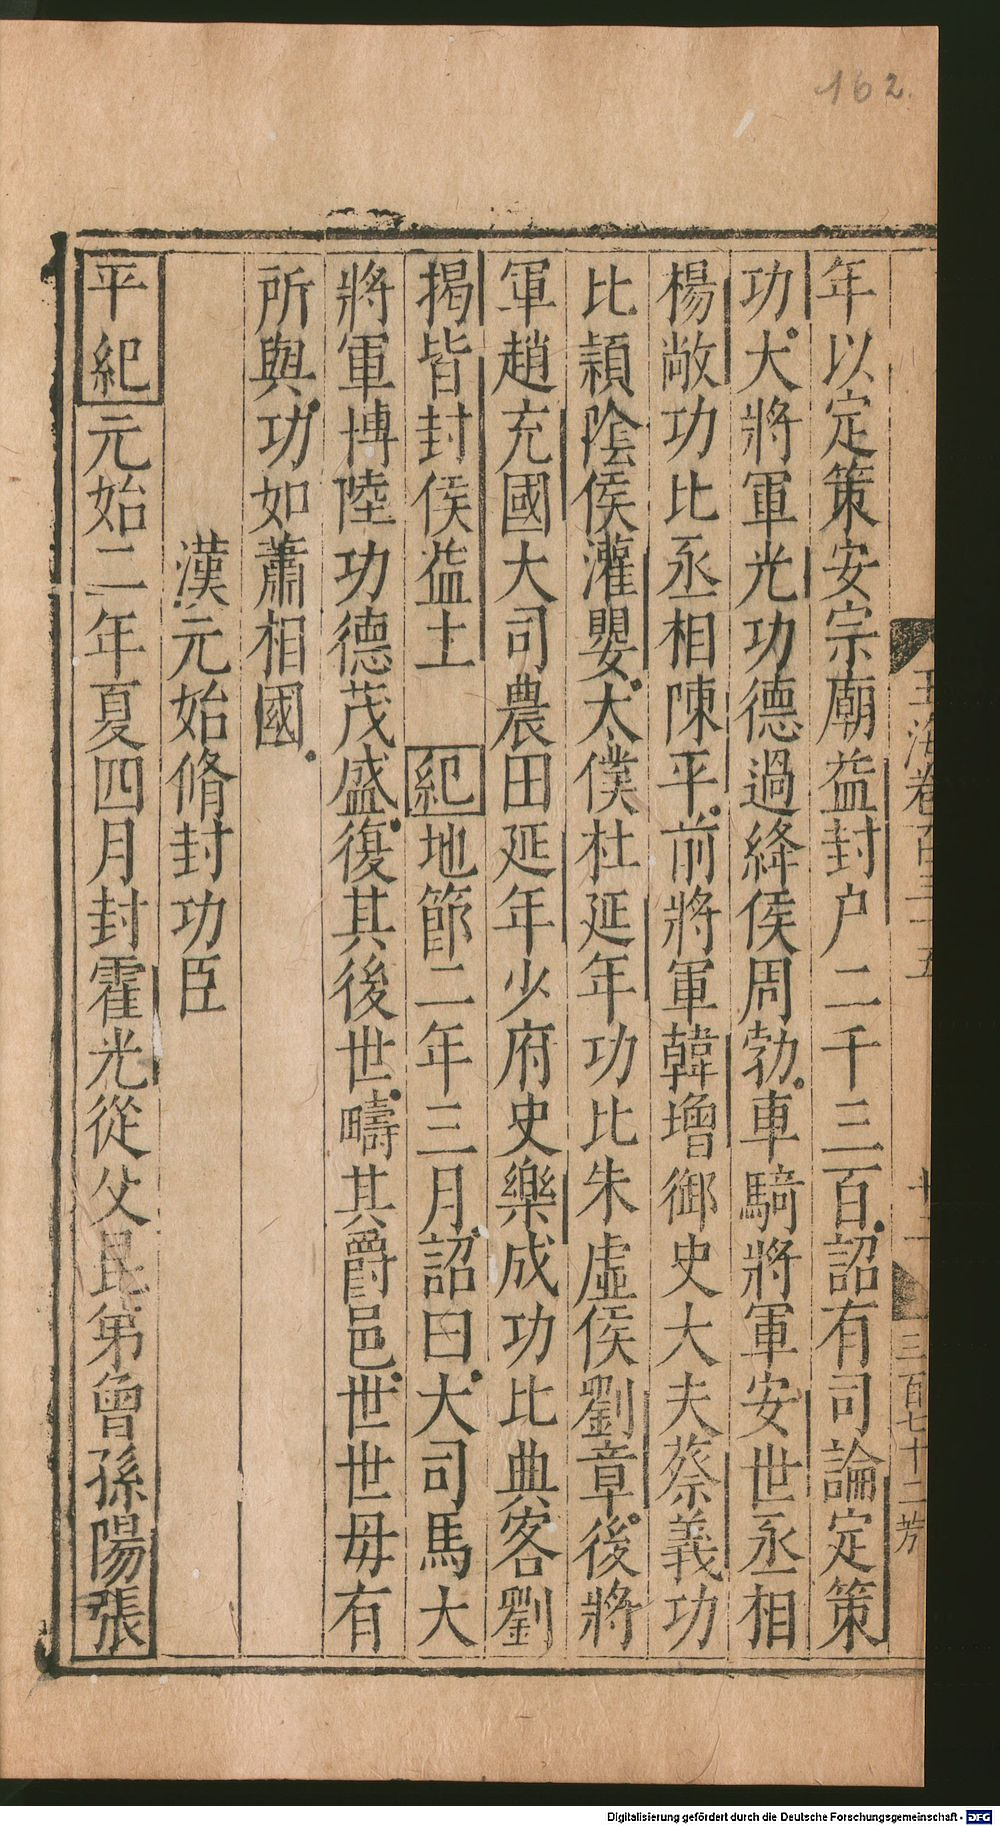 162.
玉海卷百三十五
十二
三百七十二芳
年以定策安宗廟益封户二千三百詔有司論定策
功大將軍光功德過絳侯周勃車騎將軍安世丞相
楊敞功比丞相陳平前將軍韓增御史大夫蔡義功
比潁陰侯灌嬰太僕杜延年功比朱虛侯劉章後將
軍趙充國大司農田延年少府史樂成功比典客劉
揭皆封侯益土 紀地節二年三月詔曰大司馬大
將軍博陸功德茂盛復其後世疇其爵邑世世毋有
所與功如蕭相國
漢元始脩封功臣
平紀元始二年夏四月封霍光從父昆弟曾孫陽張
Digitalisierung gefördert durch die Deutsche Forschungsgemeinschaft - DFG